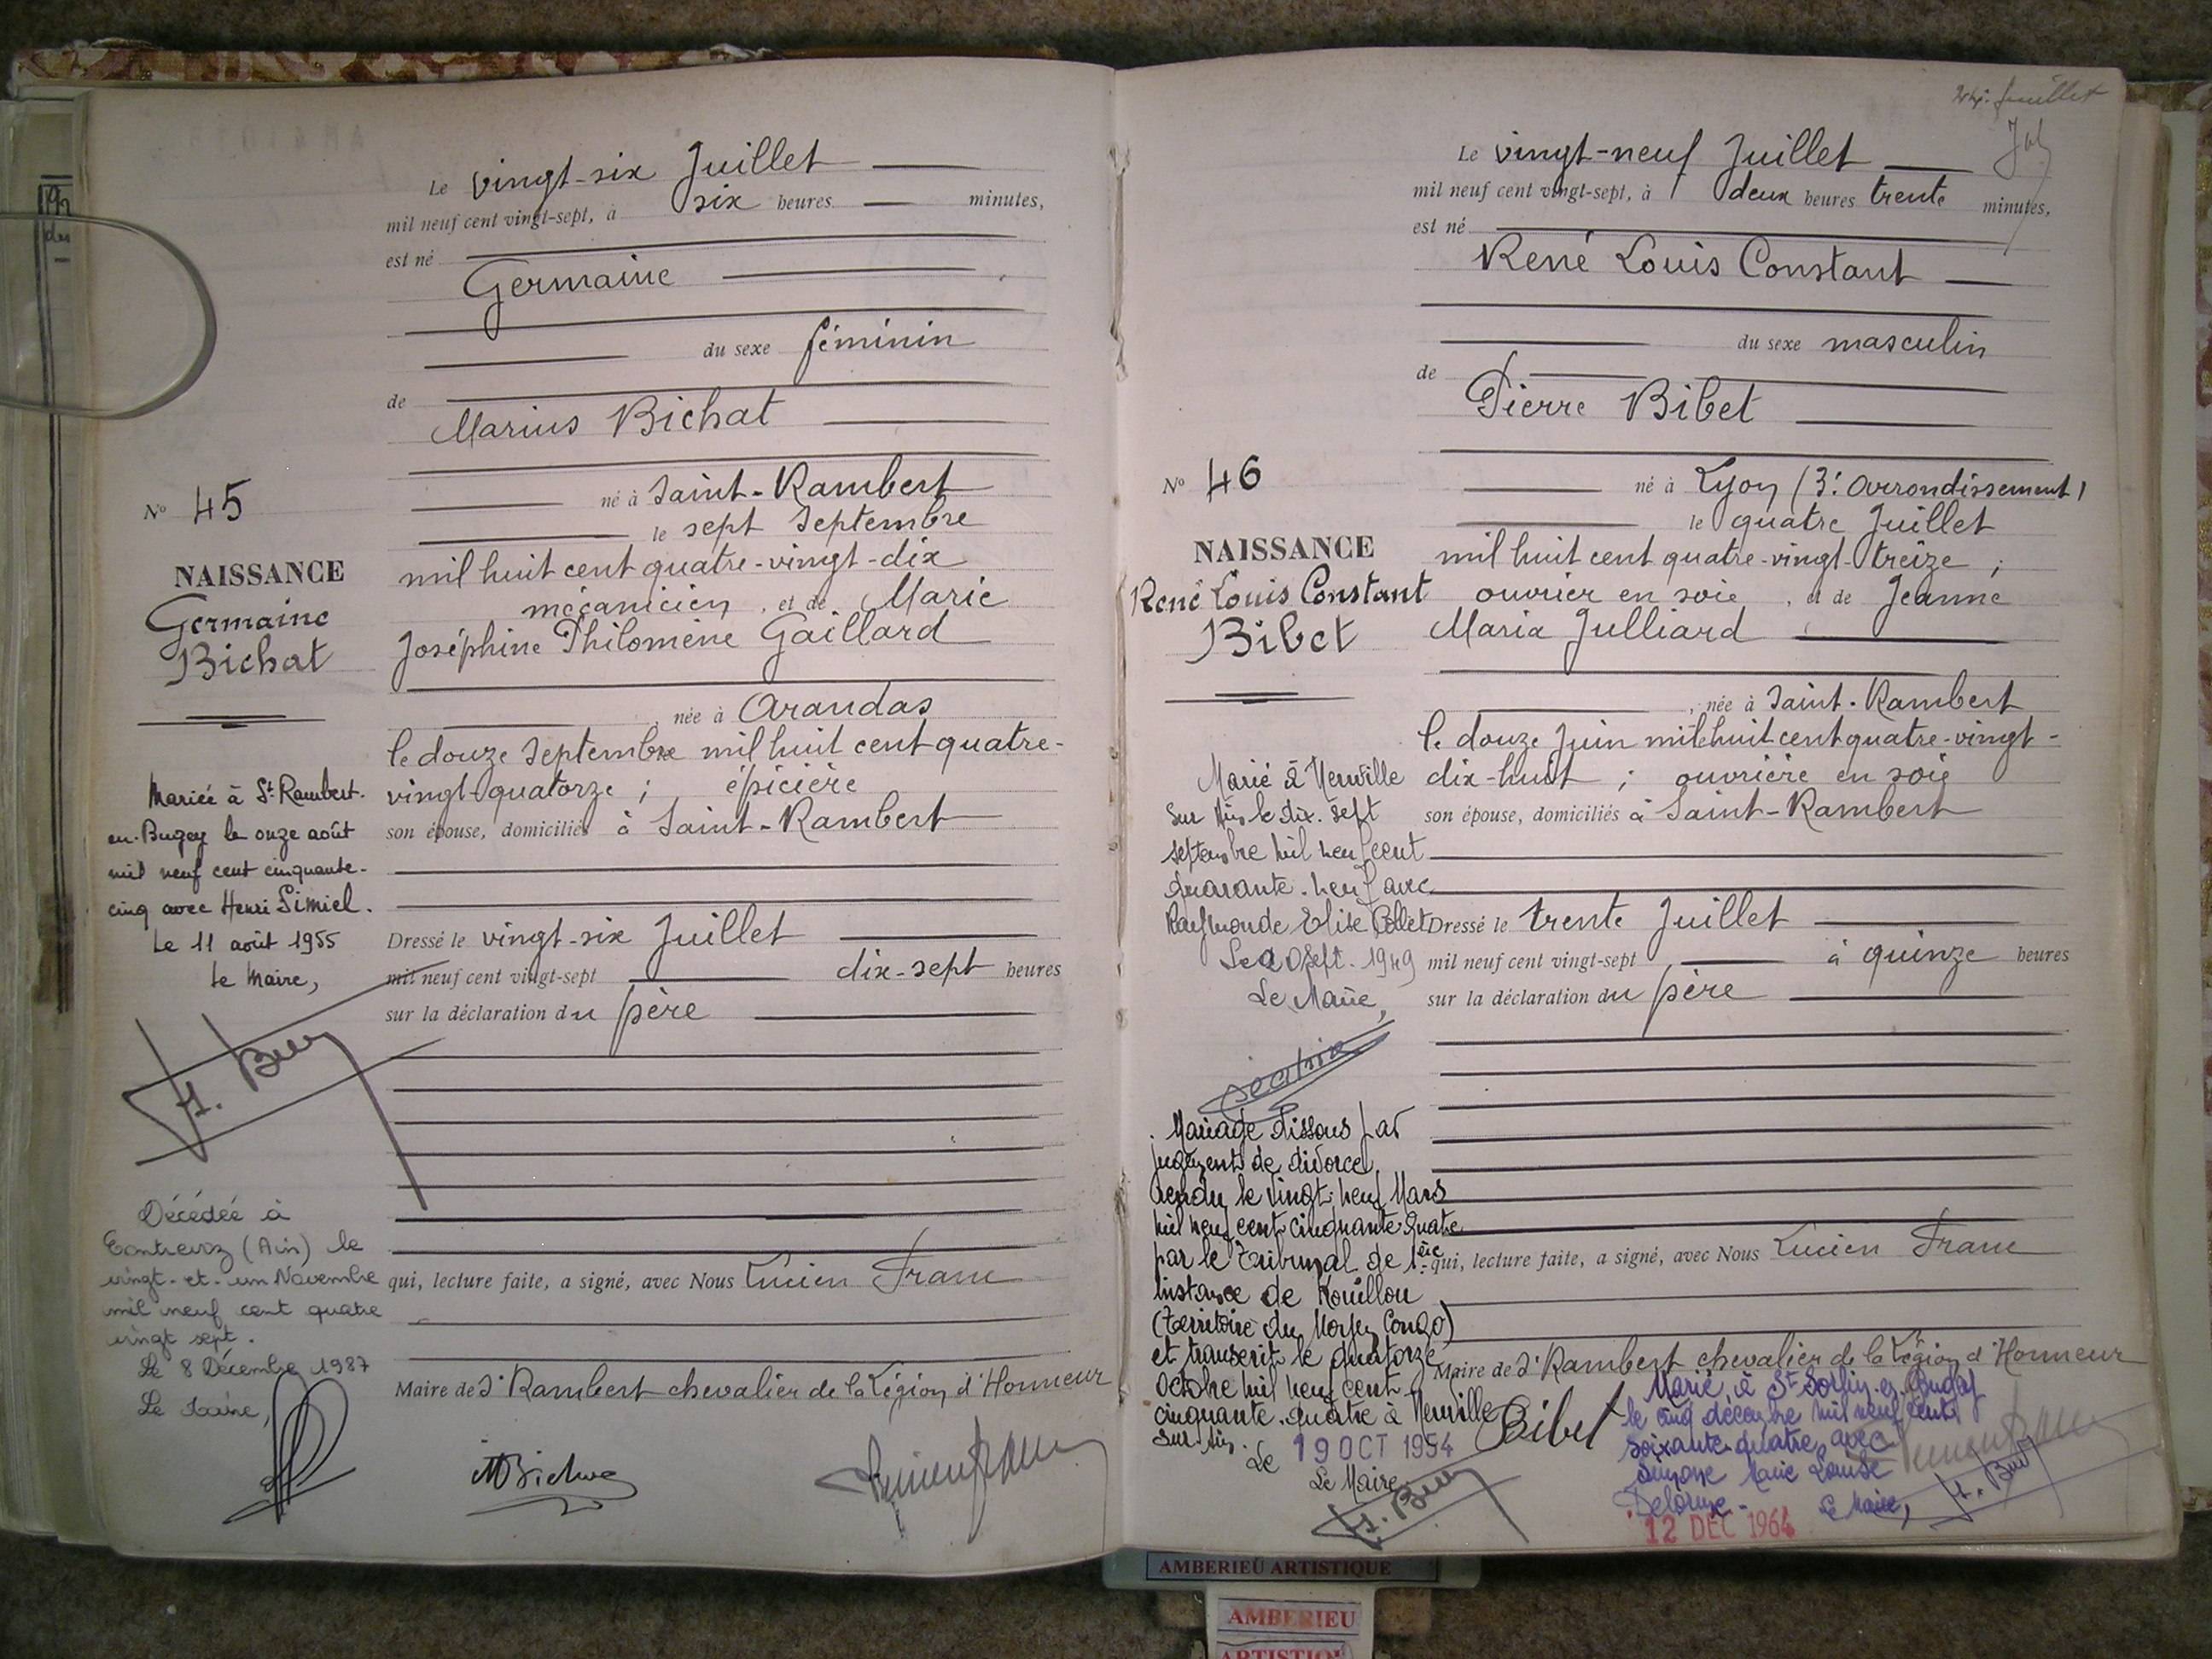 Le vingt-six Juillet
mil neuf cent vingt-sept, à six heures minutes,
est né
Germaine
du sexe féminin
de
Marius Bichat
né à Saint-Rambert
le sept Septembre
mil huit cent quatre-vingt-dix
mécanicien, et de Marie
Joséphine Philomène Gaillard
, née à Arandas
le douze Septembre mil huit cent quatre-
vingt-quatorze ; épicière
son épouse, domiciliés à Saint-Rambert
Dressé le vingt-six Juillet
mil neuf cent vingt-sept dix-sept heures
sur la déclaration du père
qui, lecture faite, a signé, avec Nous Lucien Franc
Maire de St Rambert chevalier de la Légion d'Honneur
N° 45
NAISSANCE
Germaine
Bichat
Mariée à St. Rambert-
en-Bugey le onze août
mil neuf cent cinquante-
cinq avec Henri Simiel.
Le 11 août 1955
Le Maire,
Décédée à
Contrevoz (Ain) le
vingt-et-un Novembre
mil neuf cent quatre
vingt sept.
Le 8 Décembre 1987
Le Maire,
Juillet
Le vingt-neuf Juillet
mil neuf cent vingt-sept, à deux heures trente minutes,
est né
René Louis Constant
du sexe masculin
de
Pierre Bibet
né à Lyon (3e arrondissement)
le quatre Juillet
mil huit cent quatre-vingt-treize ;
ouvrier en soie, et de Jeanne
Maria Julliard
, née à Saint-Rambert
le douze Juin mil huit cent quatre-vingt-
dix-huit ; ouvrière en soie
son épouse, domiciliés à Saint-Rambert
Dressé le trente Juillet
mil neuf cent vingt-sept à quinze heures
sur la déclaration du père
qui, lecture faite, a signé, avec Nous Lucien Franc
Maire de St Rambert chevalier de la Légion d'Honneur
Bibet
N° 46
NAISSANCE
René Louis Constant
Bibet
Marié à Neuville
sur Ain le dix-sept
septembre mil neuf cent
quarante-neuf avec
Raymonde Elise Collet
Le 20 Sept. 1949
Le Maire,
Mariage dissous par
jugement de divorce
rendu le vingt-neuf Mars
mil neuf cent cinquante quatre
par le Tribunal de 1ère
instance de Kouillou
(territoire du Moyen Congo)
et transcrit le quatorze
octobre mil neuf cent
cinquante-quatre à Neuville
sur-Ain.
Le 19 OCT 1954
Le Maire
Marié à St-Sorlin-en-Bugey
le cinq décembre mil neuf cent
soixante-quatre avec
Simone Marie Louise
Delorme.
Le Maire,
12 DEC 1964
AMBERIEU ARTISTIQUE
AMBERIEU
ARTISTIQUE